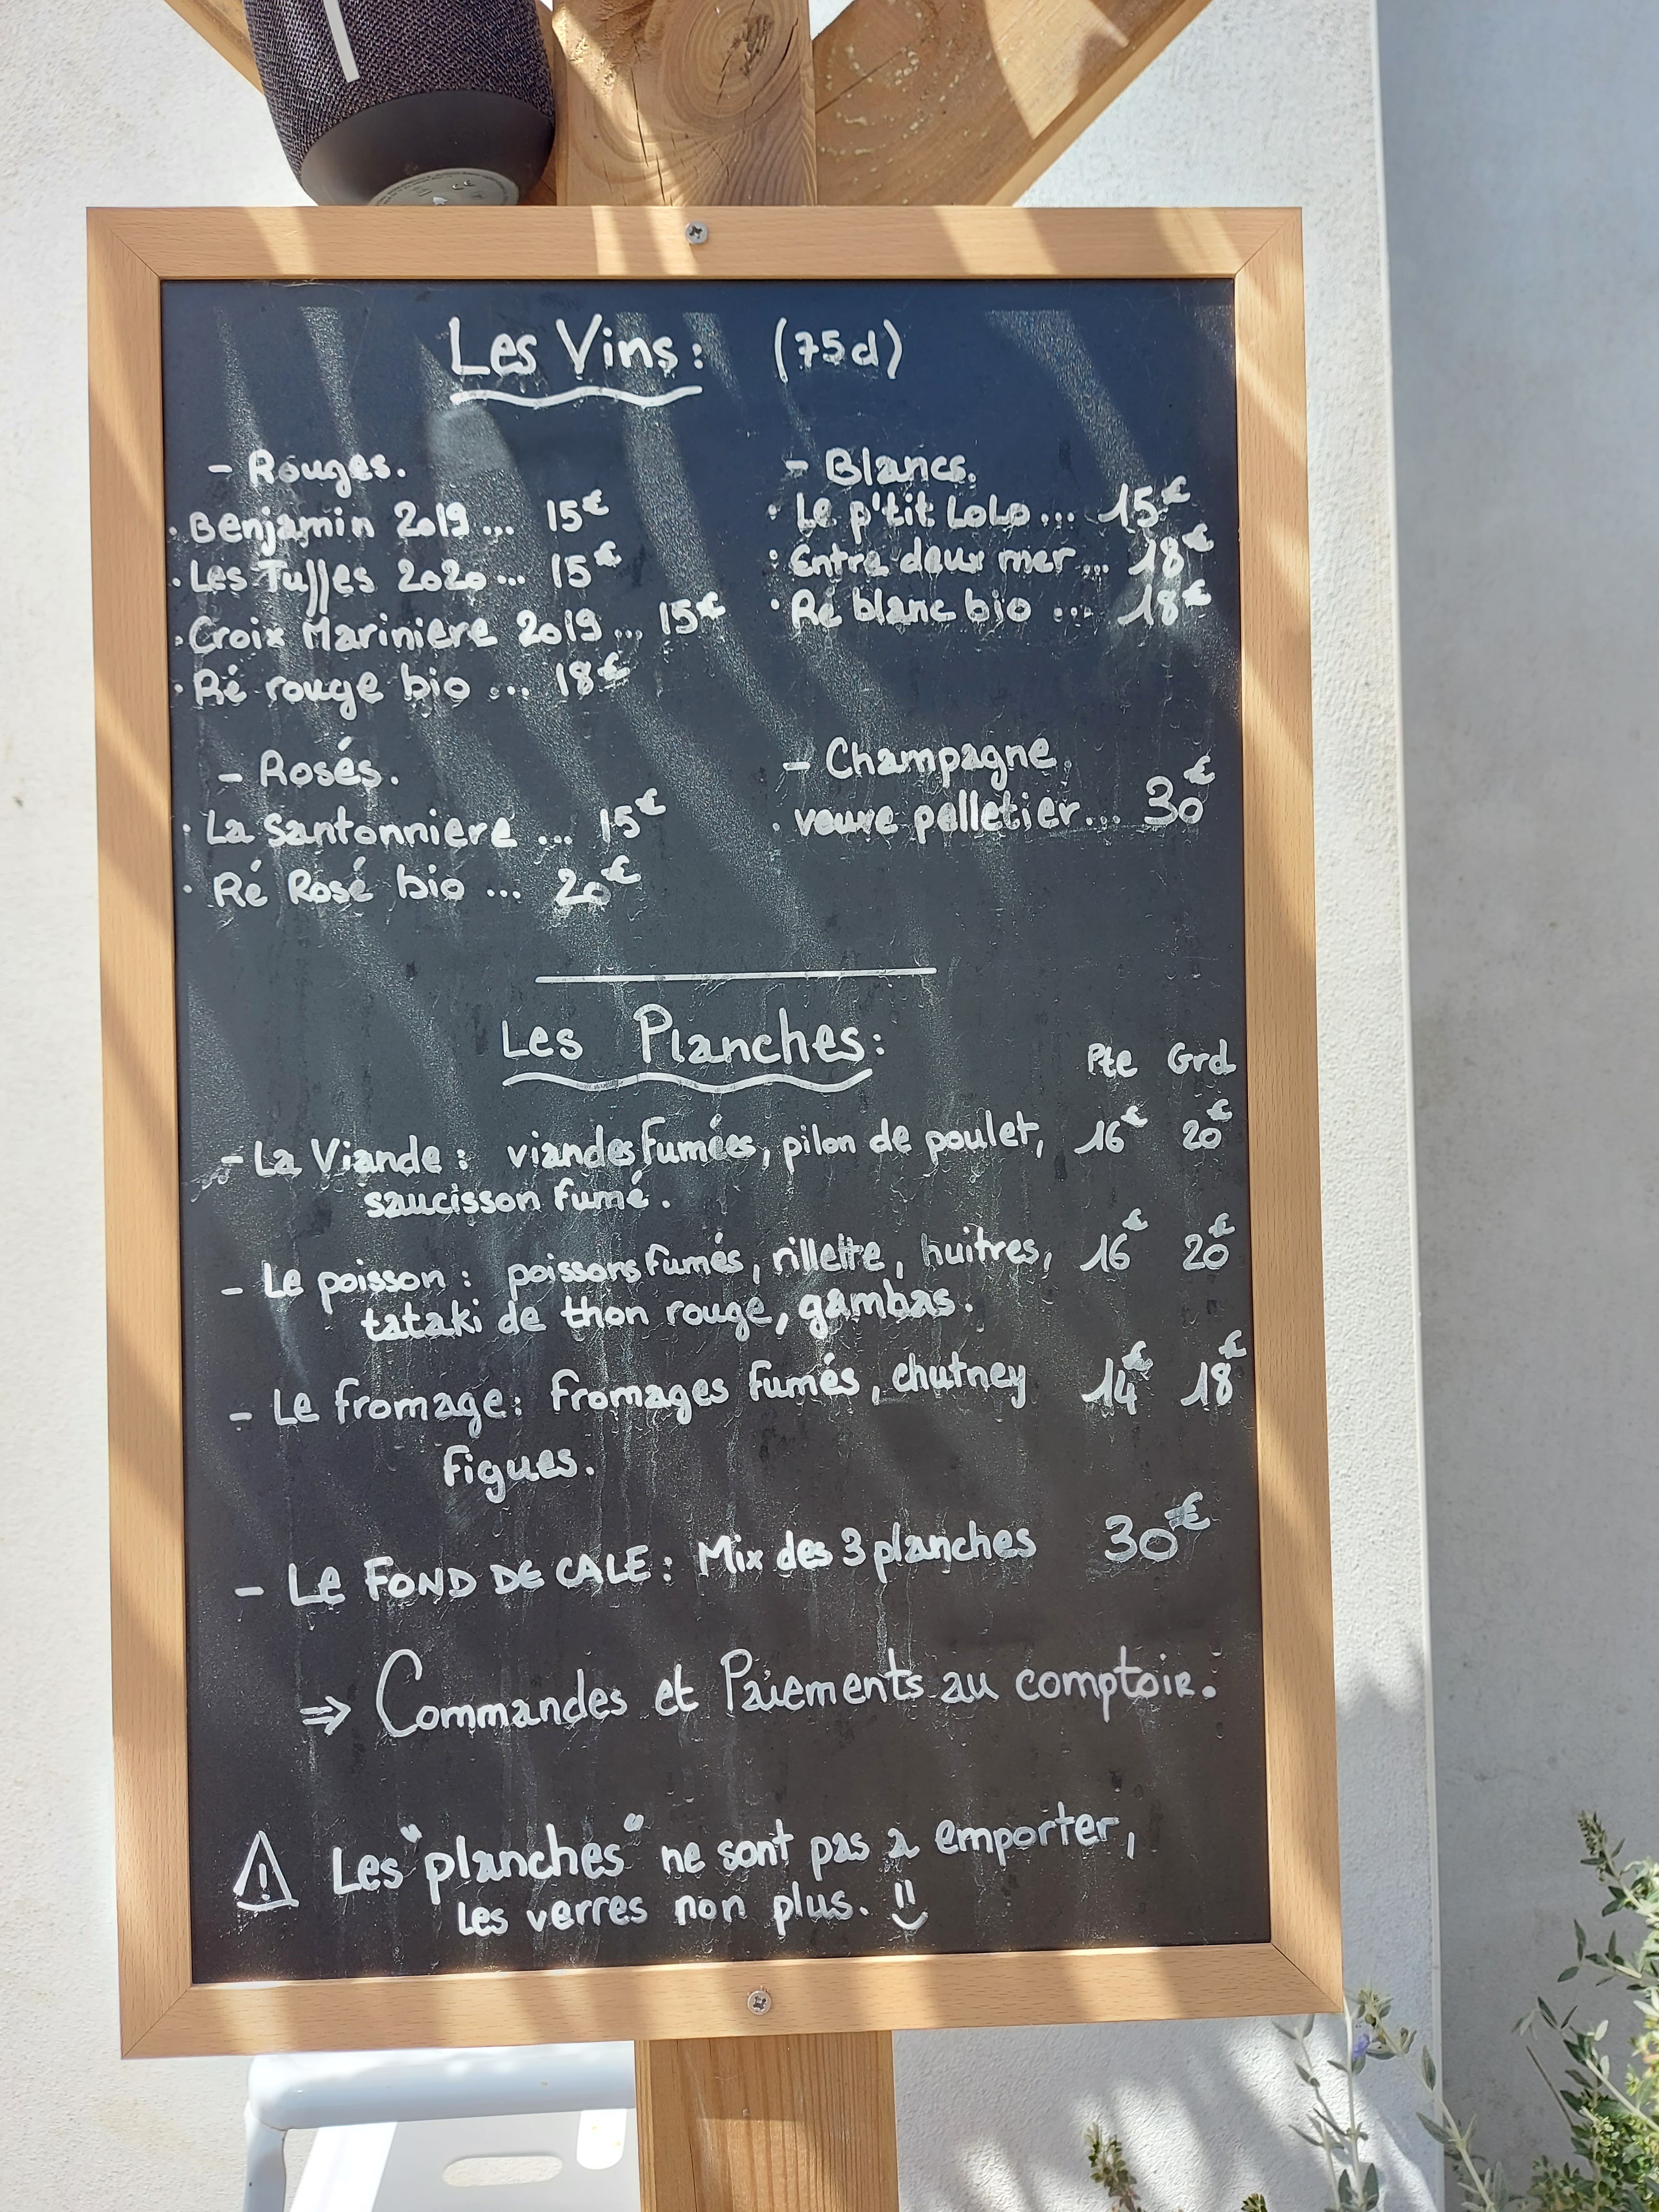 Les Vins: (75cl)
- Rouges.
· Benjamin 2019 ... 15€
· Les Tuffes 2020 ... 15€
· Croix Mariniere 2019 ... 15€
· Ré rouge bio ... 18€
- Blancs.
· Le p'tit LoLo ... 15€
· Entre deux mer ... 18€
· Ré blanc bio ... 18€
- Rosés.
· La Santonniere ... 15€
· Ré Rosé bio ... 20€
- Champagne.
· veuve pelletier ... 30€
Les Planches:
Pte Grd
- La Viande : viandes fumées, pilon de poulet, 16€ 20€
saucisson fumé.
- Le poisson : poissons fumés, rillette, huitres, 16€ 20€
tataki de thon rouge, gambas.
- Le fromage : fromages fumés, chutney 14€ 18€
figues.
- Le FOND DE CALE : Mix des 3 planches 30€
⇒ Commandes et Paiements au comptoir.
⚠ Les "planches" ne sont pas a emporter,
les verres non plus. :)